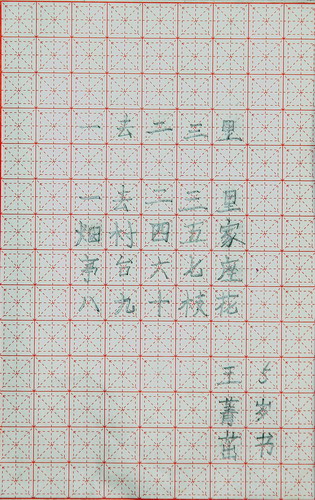 一去二三里
一去二三里
烟村四五家
亭台六七座
八九十枝花
王菁茁
5岁书